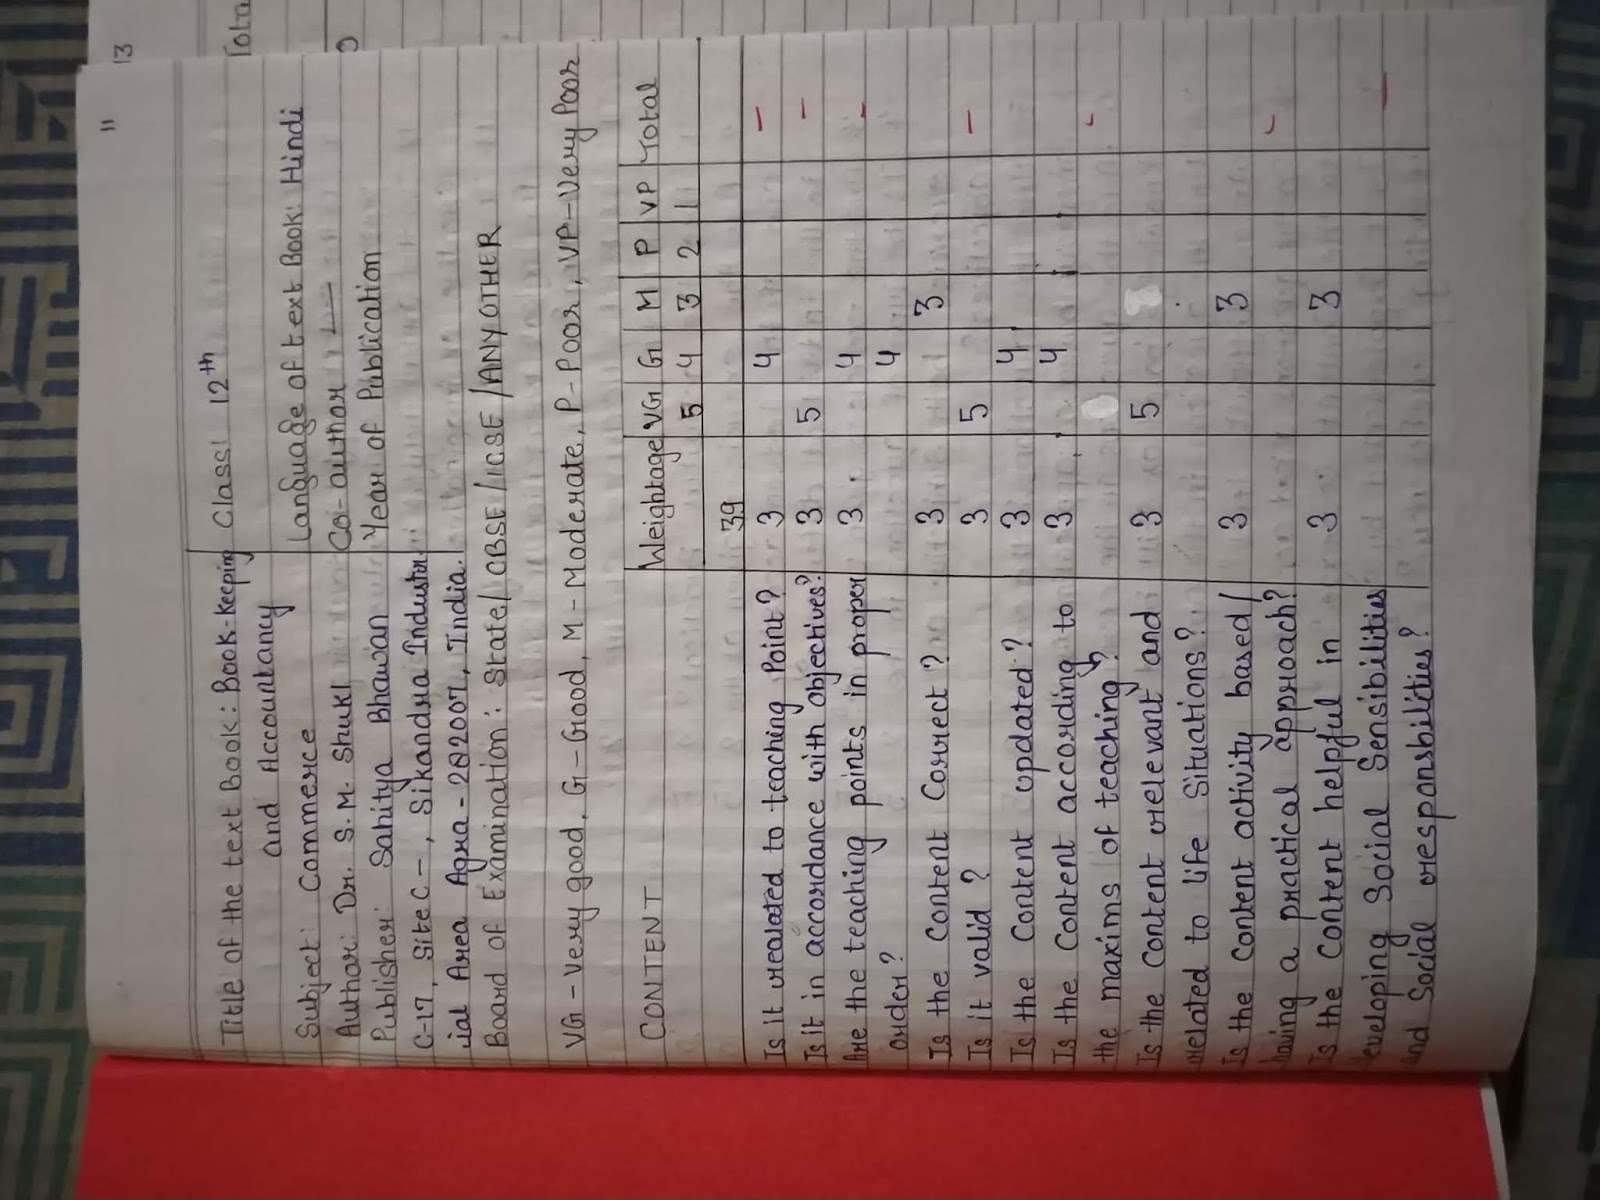 11
13
Tota
Title of the text Book: Book-keeping and Accountancy
Class: 12th
Subject: Commerce
Language of text Book: Hindi
Author: Dr. S.M. Shukl
Co-author —
Publisher: Sahitya Bhawan
Year of Publication
C-17, Site C-, Sikandra Industr
ial Area Agra - 282007, India.
Board of Examination: State/CBSE/ICSE/ANY OTHER
VG - Very good, G - Good, M - Moderate, P - Poor, VP - Very Poor
CONTENT Weightage VG G M P VP Total
5 4 3 2 1
39
Is it related to teaching Point? 3 4 -
Is it in accordance with objectives? 3 5 -
Are the teaching points in proper 3 4 -
order? 4
Is the content Correct? 3 3
Is it valid? 3 5 -
Is the Content updated? 3 4
Is the Content according to 3 4
the maxims of teaching?
Is the Content relevant and 3 5
related to life Situations?
Is the Content activity based/ 3 3
having a practical approach?
Is the Content helpful in 3 3
eveloping Social Sensibilities
and Social responsbilities?